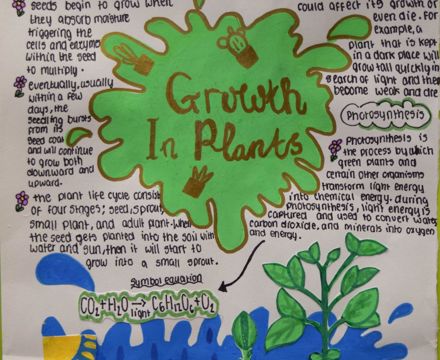 seeds begin to grow when
they absorb moisture
triggering the
cells and enzyme
within the seed
to multiply.
eventually, usually
within a few
days, the
seedling bursts
from its
seed coat
and will continue
to grow both
downward and
upward.
the plant life cycle consist
of four stages; seed, sprout,
small plant, and adult plant. when
the seed gets planted into the soil with
water and sun, then it will start to
grow into a small sprout.
Growth
In Plants
could affect its growth or
even die. For
example, a
plant that is kept
in a dark place will
grow tall quickly in
search of light and then
become weak and die
Photosynthesis
Photosynthesis is
the process by which
green plants and
certain other organisms
transform light energy
into chemical energy. during
photosynthesis, light energy is
captured and used to convert water,
carbon dioxide, and minerals into oxygen
and energy.
symbol equation
CO2+H2O → C6H12O6+O2
light